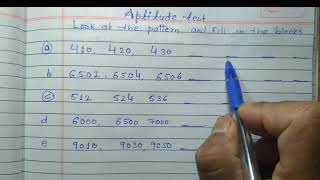 Aptitude test
Look at the pattern and Fill in the blanks
(a) 410, 420, 430
b 6502, 6504, 6506
(c) 512 524 536
d 6000, 6500 7000
e 9010, 9030, 9050